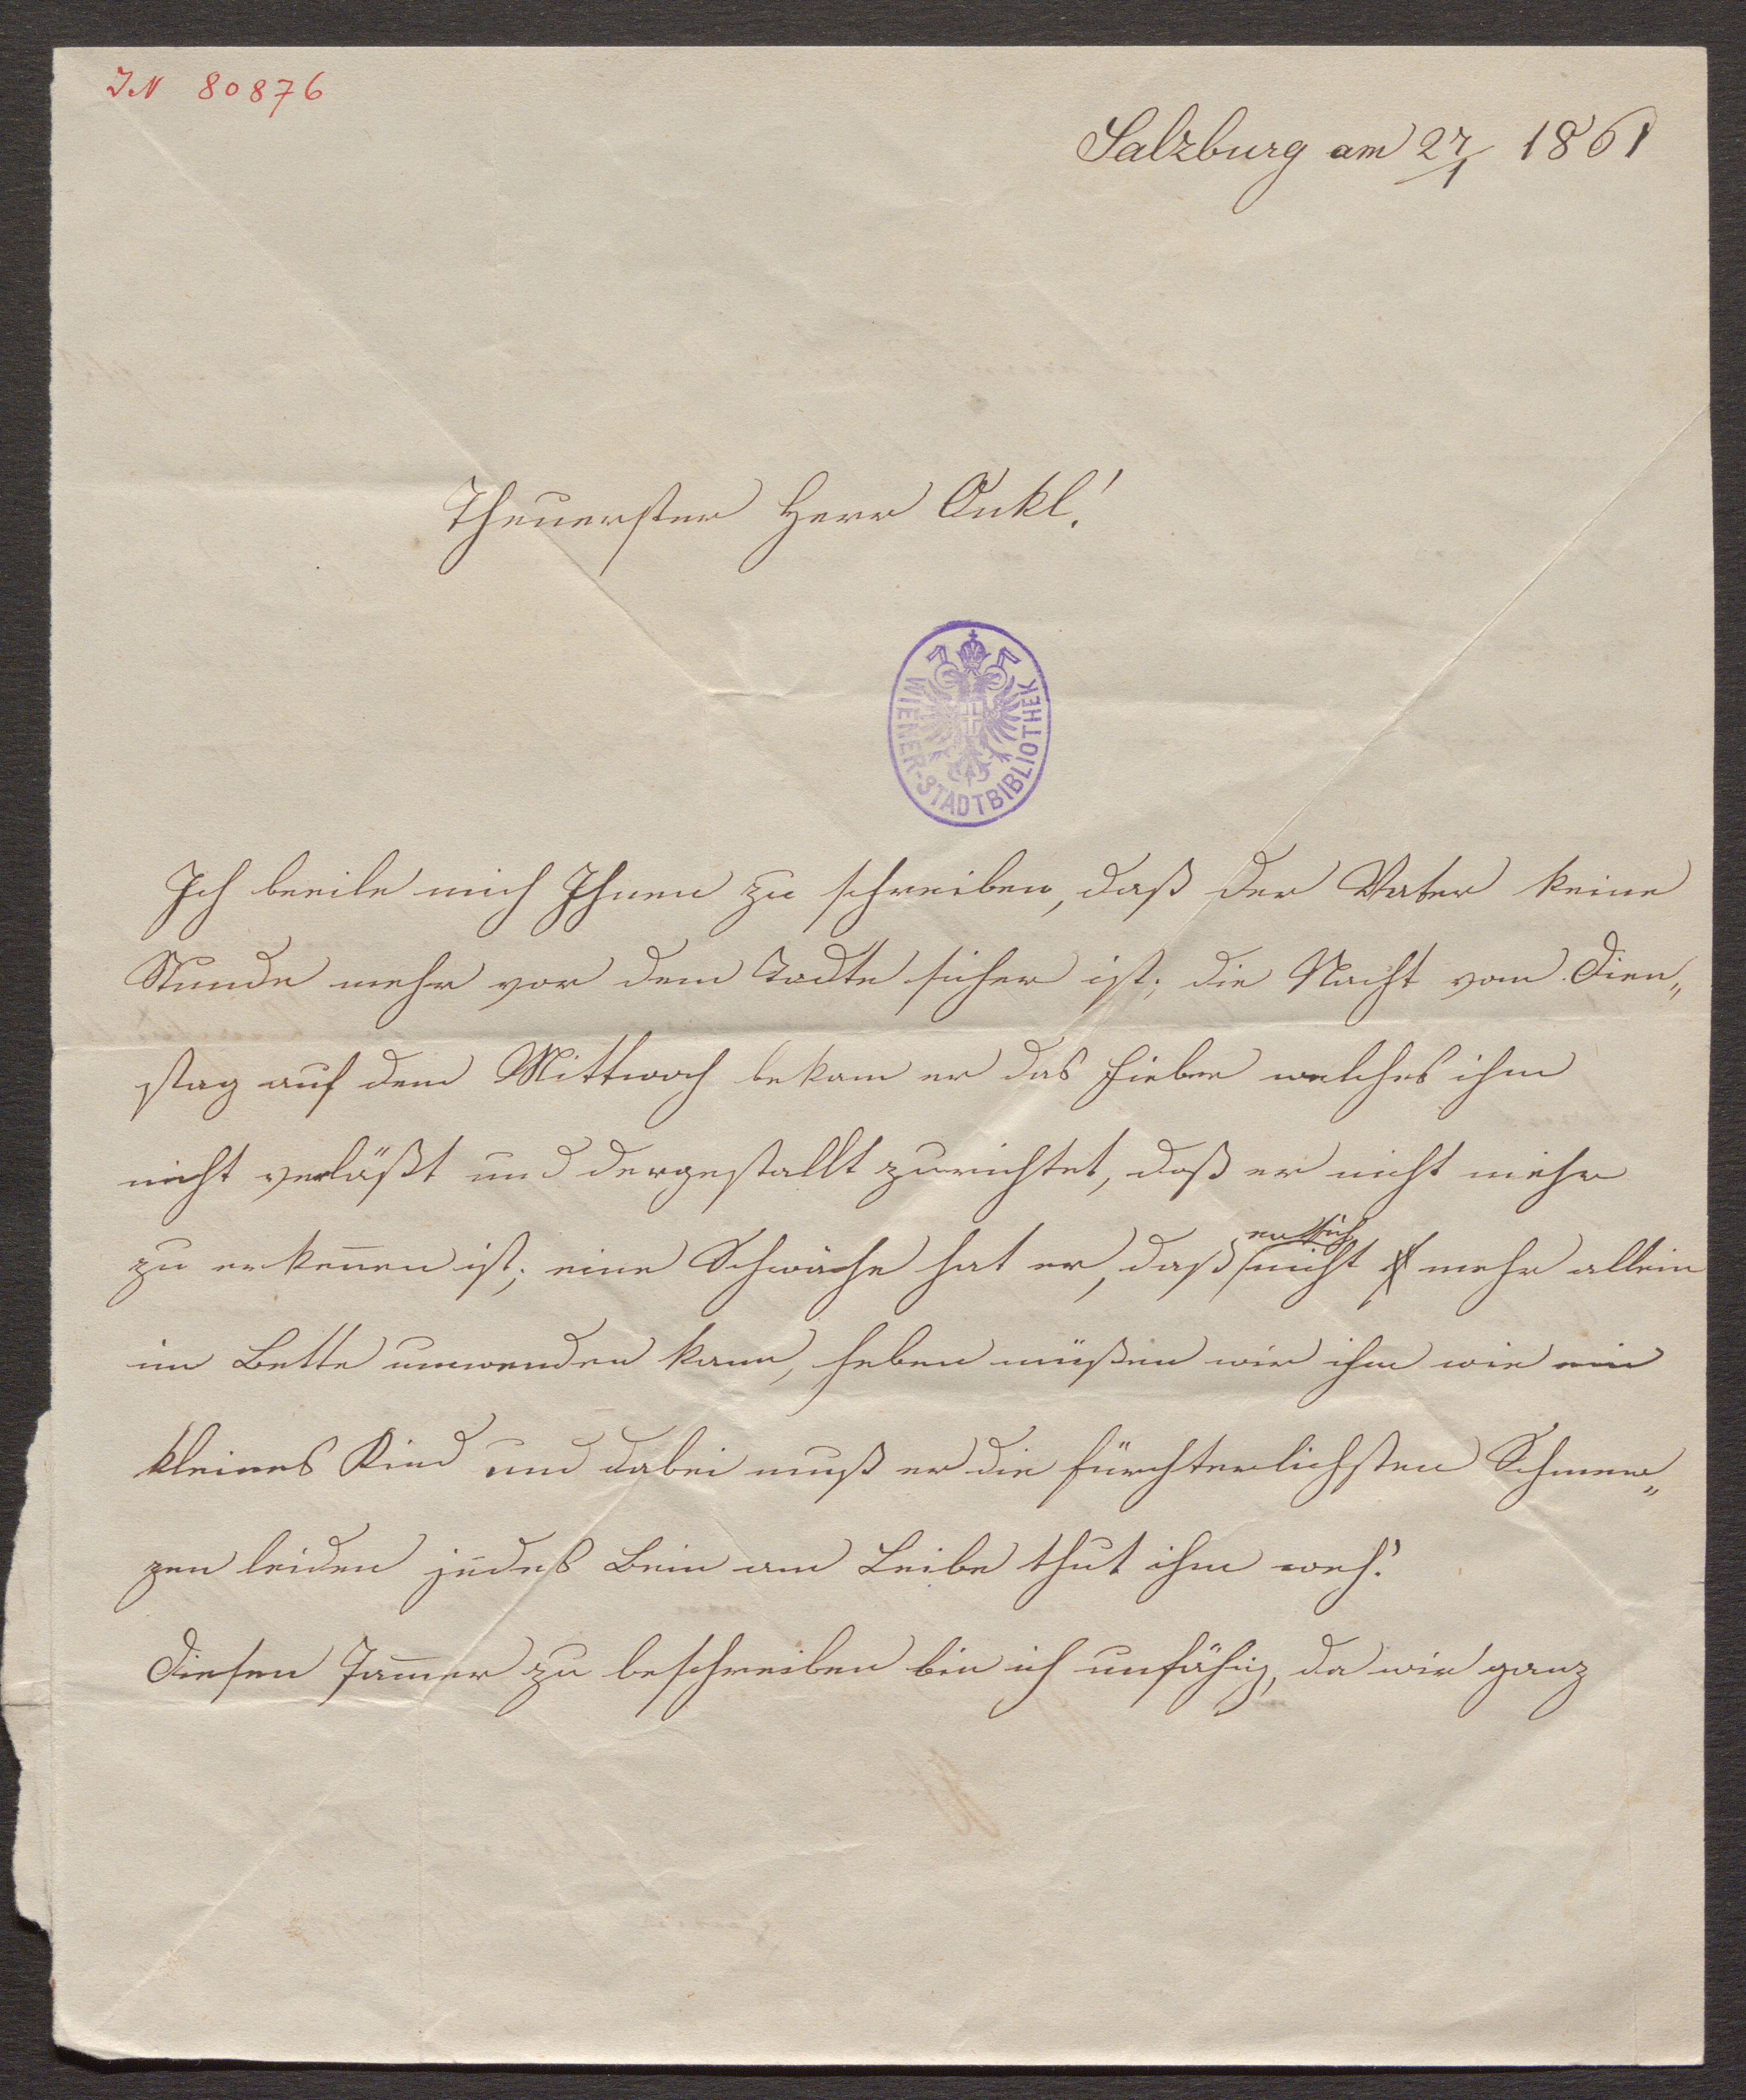 IN 80876
Salzburg am 27/1 1861
Theuerster Herr Onkl!
WIENER-STADTBIBLIOTHEK
Ich beeile mich Ihnen zu schreiben, daß der Vater keine
Stunde mehr vor dem Todte sicher ist; die Nacht vom Dien„
stag auf dem Mittwoch bekam er das Fieber welches ihm
nicht verläßt und dergestallt zurichtet, daß er nicht mehr
zu erkennen ist; eine Schwäche hat er, daß er sich nicht mehr allein
im Bette umwenden kann, heben müßen wir ihm wie ein
kleines Kind und dabei muß er die fürchterlichsten Schmer„
zen leiden jedes Bein am Leibe thut ihm weh!
Diesen Jammer zu beschreiben bin ich unfähig, da wir ganz